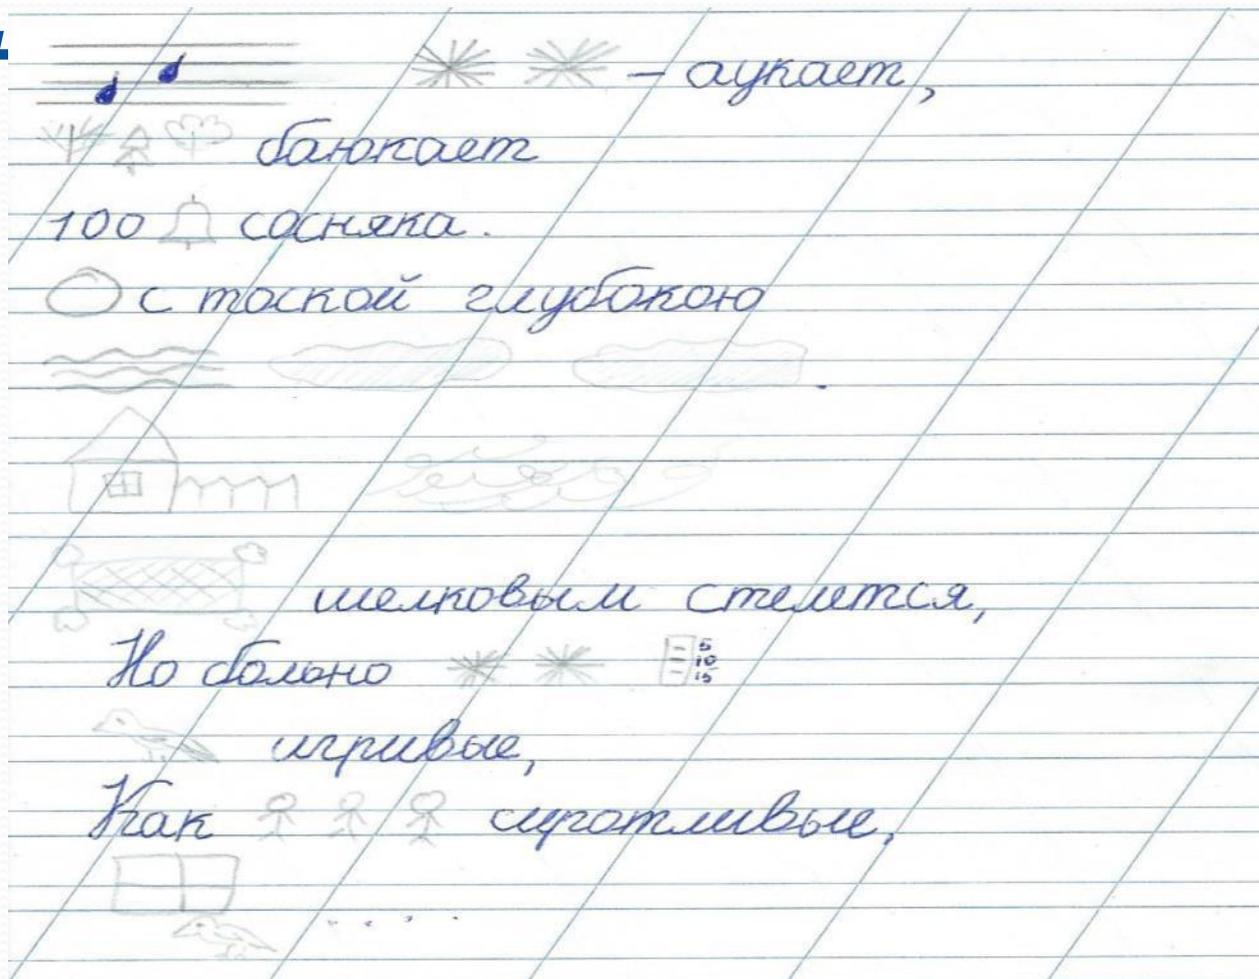 – аукает,
баюкает
100 сосняка.
с тоской глубокою
шелковым стелется,
Но больно 5 10 15
игривые,
Как сиротливые,